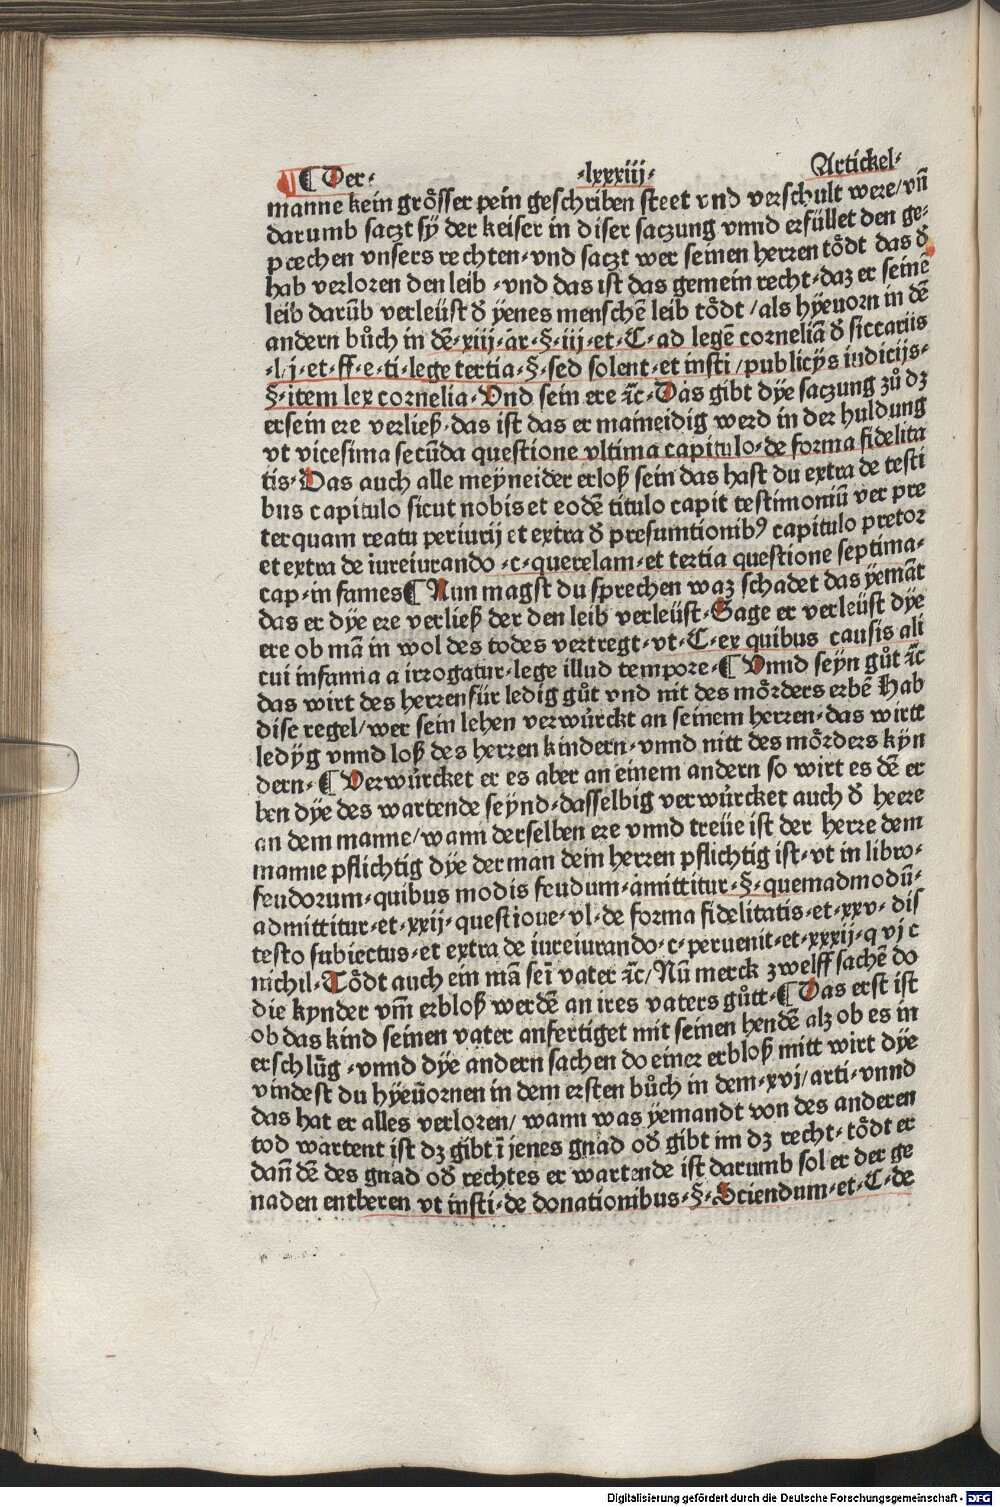 ¶ Der· ·lxxxiij· Artickel·
manne kein grösser pein geschriben steet vnd verschult were/vñ
darumb saczt sÿ der keiser in diser saczung vnnd erfüllet den ge⸗
prechen vnsers rechten·vnd saczt wer seinen herren tödt das ð
hab verloren den leib ·vnd das ist das gemein recht·daz er seinē
leib darūb verleüst ð ÿenes menschē leib tödt /als hÿeuorn in dē
andern bůch in dē·xiij·ar·§·iij·et·C·ad legē corneliā ð siccariis
·l·j·et·ff·e·ti·lege tertia·§·sed solent·et insti/publicÿs iudicijs·
§·item lex cornelia·Vnd sein ere ⁊c·Das gibt dÿe saczung zů dz
ersein ere verließ·das ist das er maineidig werd in der huldung
vt vicesima secūda questione vltima capitulo·de forma fidelita
tis·Das auch alle meÿneider erloß sein das hast du extra de testi
bus capitulo sicut nobis et eodē titulo capit testimoniū ver pre
terquam reatu periurij et extra ð presumtionibꝰ capitulo pretor
et extra de iureiurando ·c·querelam·et tertia questione septima·
cap·in fames¶ Nun magst du sprechen waz schadet das ÿemāt
das er dÿe ere verließ der den leib verleüst·Sage er verleüst dÿe
ere ob mā in wol des todes vertregt·vt·C·ex quibus causis ali
cui infamia a irrogatur·lege illud tempore·¶ Vnnd seÿn gůt ⁊c
das wirt des herren für ledig gůt vnd nit des mörders erbē Hab
dise regel/wer sein lehen verwürckt an seinem herren·das wirtt
ledÿg vnnd loß des herren kindern·vnnd nitt des mörders kÿn
dern·¶ Verwürcket er es aber an einem andern so wirt es dē er
ben dÿe des wartende seÿnd·dasselbig verwürcket auch ð heere
an dem manne/wann derselben ere vnnd treüe ist der herre dem
manne pflichtig dÿe der man dem herren pflichtig ist·vt in libro·
feudorum·quibus modis feudum·amittitur·§·quemadmodū·
admittitur·et·xxij·questioue·vl·de forma fidelitatis·et·xxv·dis
testo subiectus·et extra de iureiurando·c·peruenit·et·xxxij·q vj c
nichil·Tödt auch ein mā seī vater ⁊c/Nū merck zwelff sachē do
die kÿnder vm̄ erbloß werdē an ires vaters gůtt·¶ Das erst ist
ob das kind seinen vater anfertiget mit seinen hendē alz ob es in
erschlūg ·vnnd dÿe andern sachen do einer erbloß mitt wirt dÿe
vindest du hÿeūornen in dem ersten bůch in dem·xvj/arti·vnnd
das hat er alles verloren/ wann was ÿemandt von des anderen
tod wartent ist dz gibt ī jenes gnad oð gibt im dz recht·tödt er
dañ dē des gnad oð rechtes er wartende ist darumb sol er der ge
naden entberen vt insti·de donationibus·§·Sciendum·et·C·de
Digitalisierung gefördert durch die Deutsche Forschungsgemeinschaft - DFG